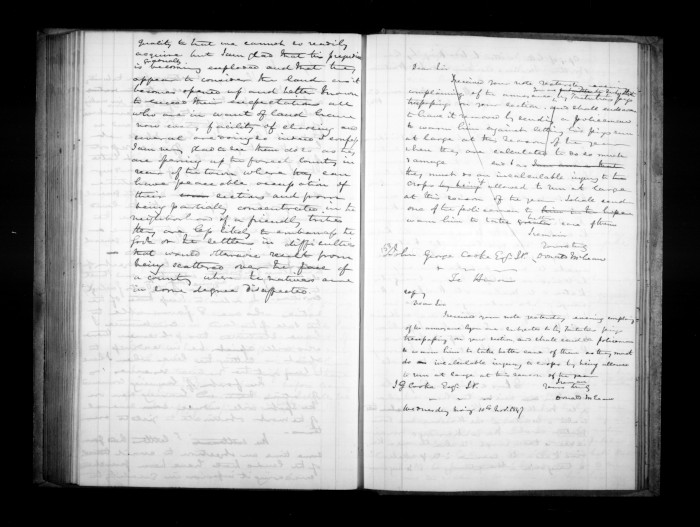 quality to that we cannot so readily
acquire but I am glad that his prejudice
gradually
is becoming exploded and that they
appear to consider the land as it
becomes opened up and better known
to exceed their expectations all
who are in want of land have
now every facility of choosing and
several are doing so indeed I confess
I am very glad to see them do so as they
are opening up the forest country in
rear of the town where they can
have peaceable occupation of
their sections and from
being partially concentrated in the
neighborhood of a friendly tribe
they are less likely to embarrass the
Govt or the settlers in difficulties
that would otherwise result from
being scattered over the face of
a country where the natives are
in some degree disaffected.
Dear Sir
Received your note yesterday
complaining of the annoyance
trespassing on your section and shall endeavour
to have it removed by sending a policeman
to warn him against letting his pigs run
at large at this season of the year
when they are calculated to do so much
damage and as
they must do an incalculable injury to the
crops by being allowed to run at large
at this season of the year I shall send
one of the policemen to
warn him to take better care of them
I remain
Yours truly
John George Cooke Esqr. J.P. Donald McLean
To Himon
copy
Dear Sir
Received your note yesterday evening complaing
of the annoyance you are subjected to by pigs
trespassing on your section and shall send the policeman
to warn him to take better care of them as they must
do an incalculable injury to crops by being allowed
to run at large at this season of the year
I remain
J G Cooke Esqr. J.P. Yours truly
Donald McLean
Wednesday Evg 10th Nov. 1847